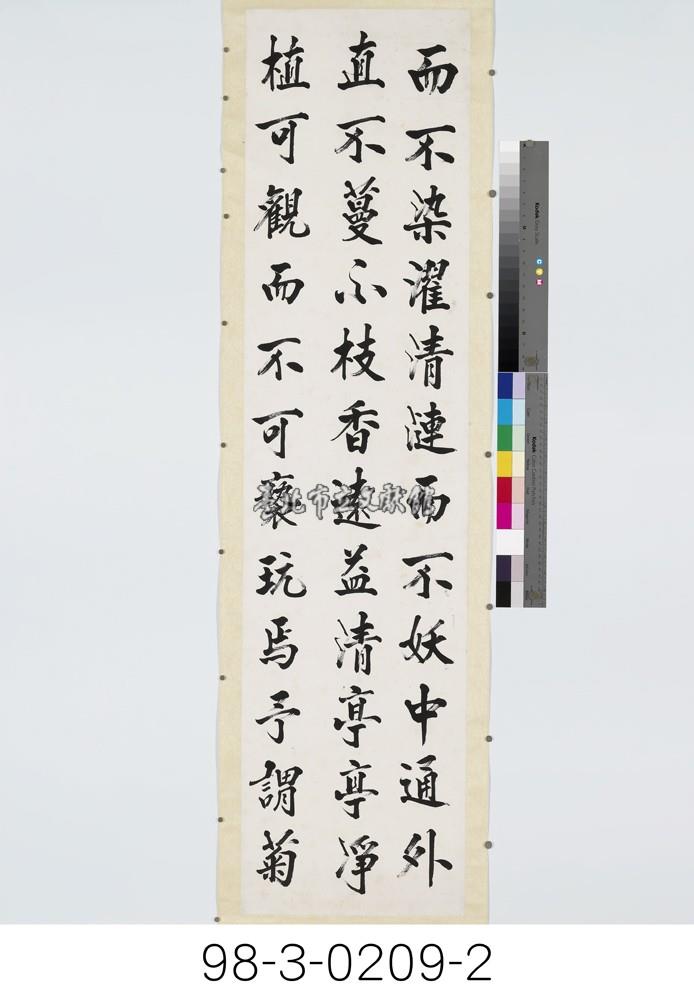 而不染濯清漣而不妖中通外
直不蔓不枝香遠益清亭亭淨
植可觀而不可褻玩焉予謂菊
臺北市立文獻館
Kodak
Kodak
98-3-0209-2